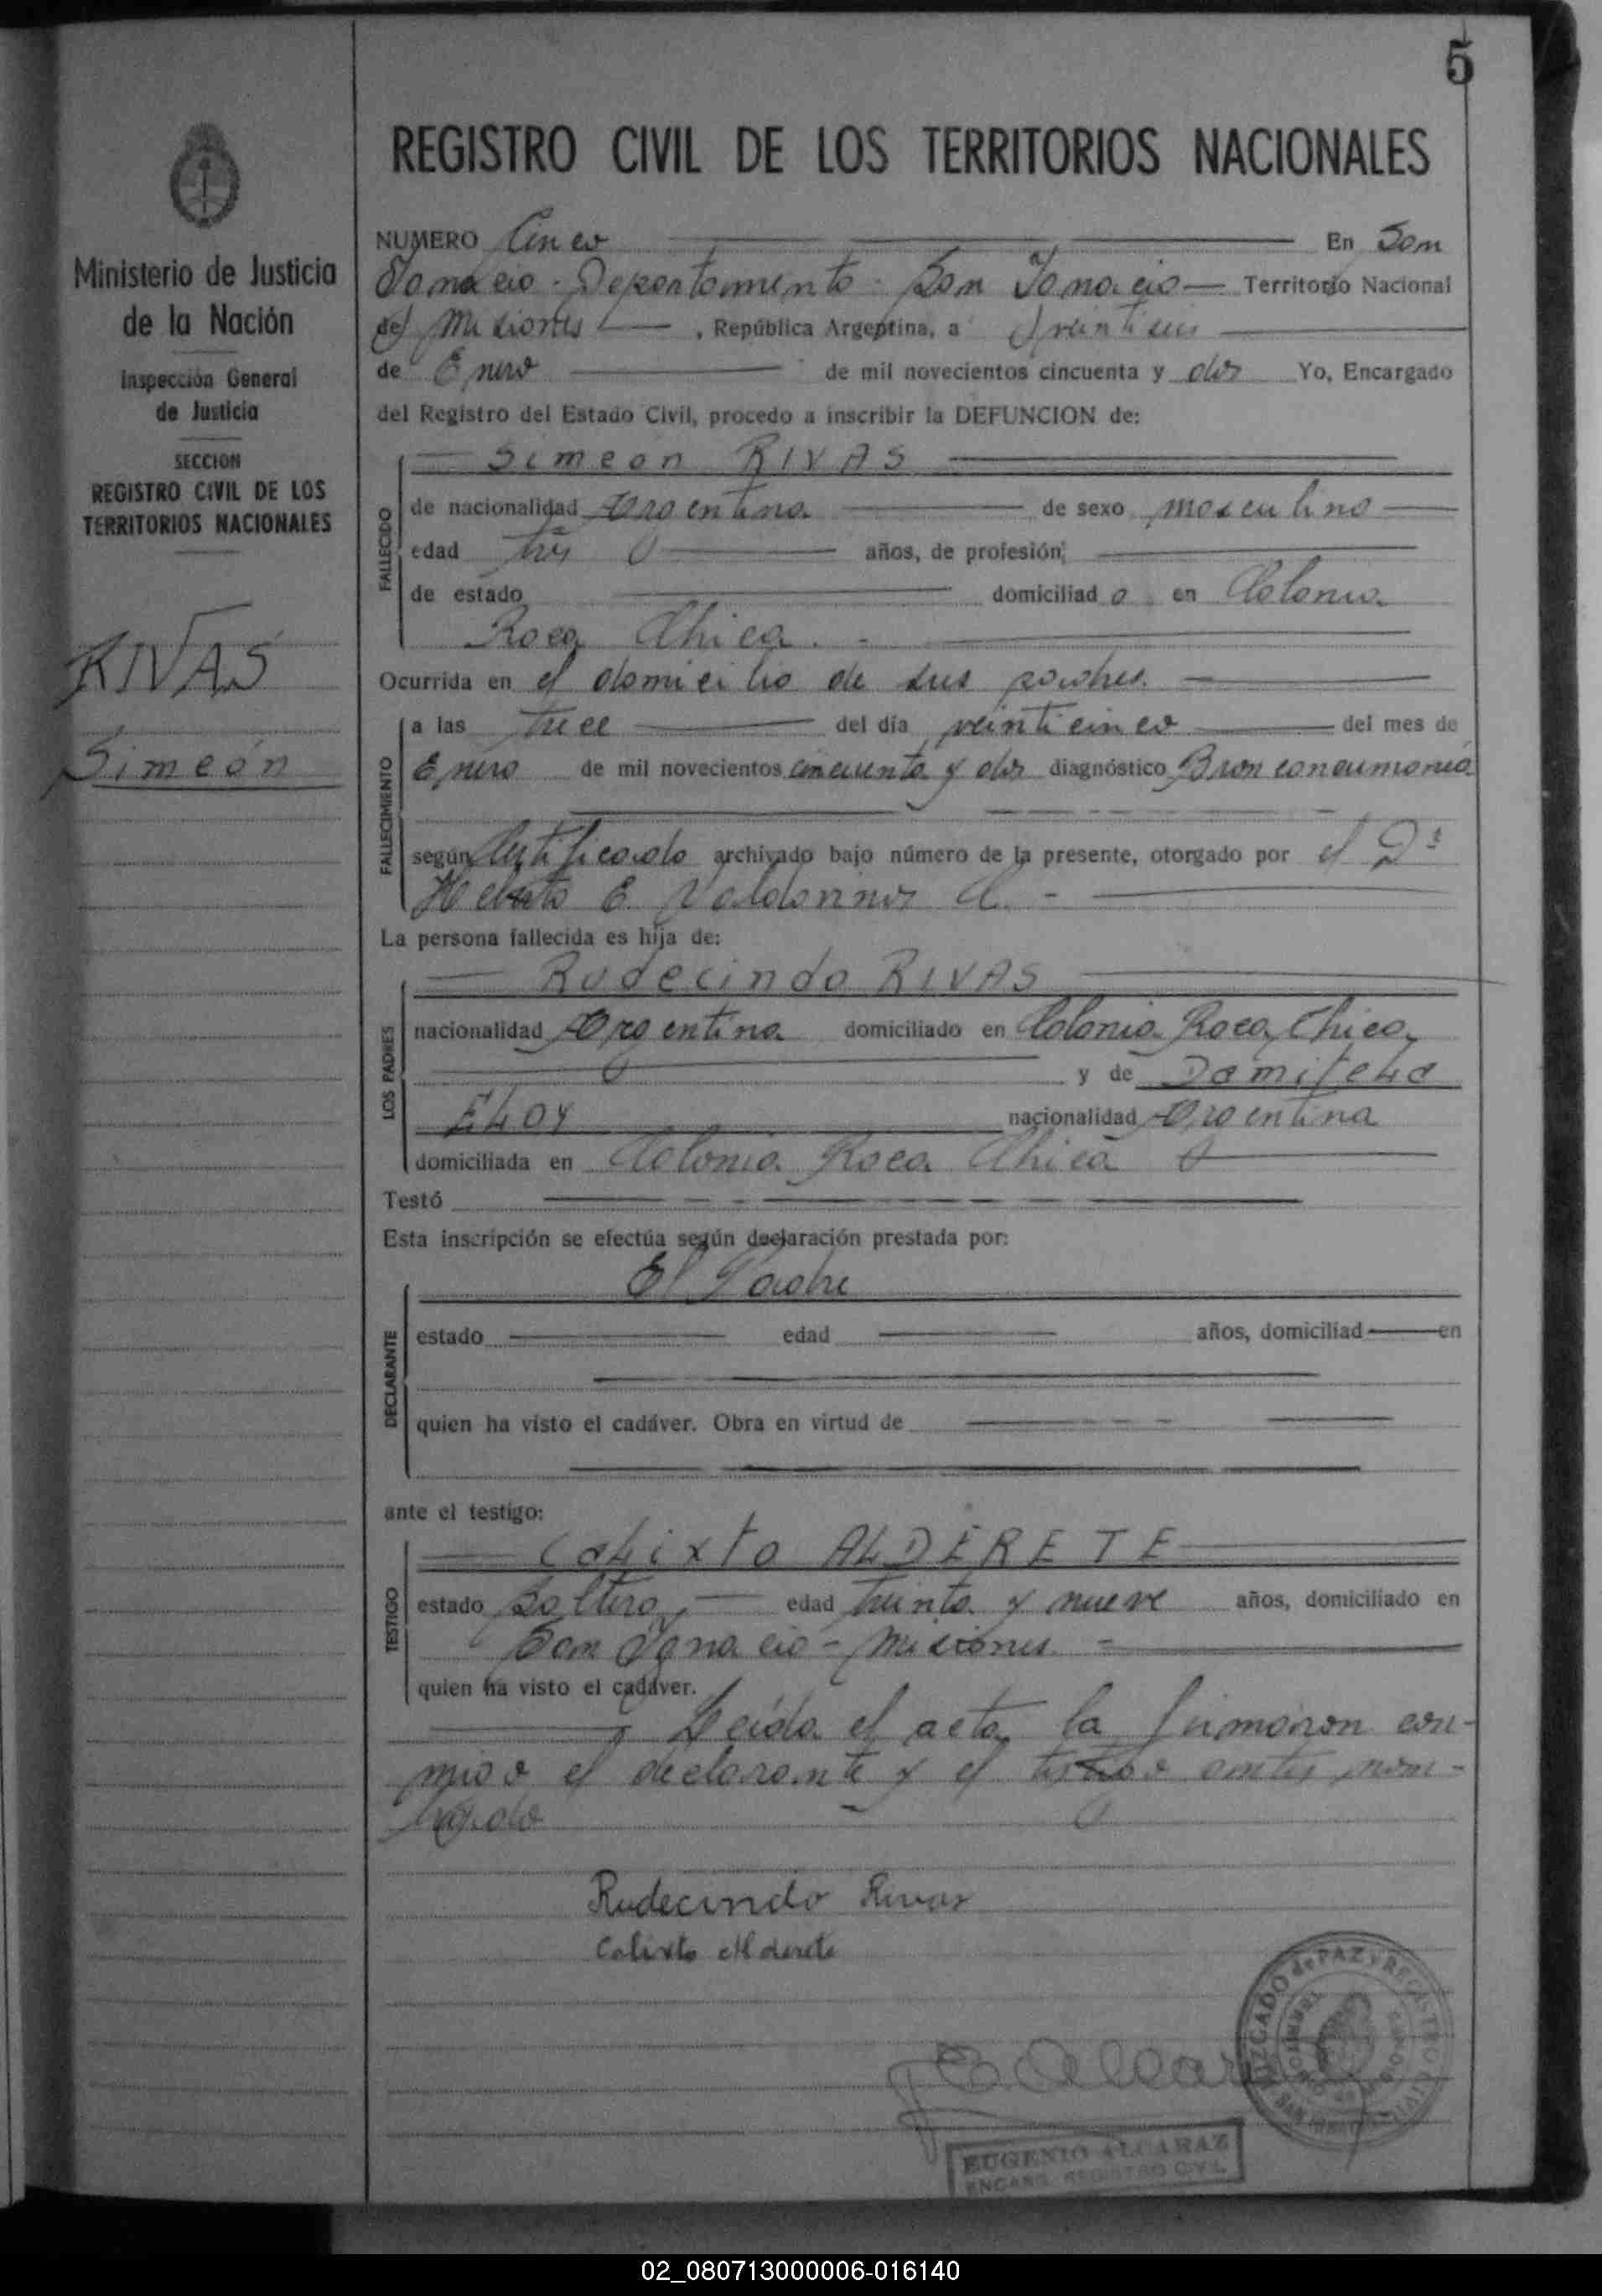 5
REGISTRO CIVIL DE LOS TERRITORIOS NACIONALES
Ministerio de Justicia
de la Nación
Inspección General
de Justicia
SECCION
REGISTRO CIVIL DE LOS
TERRITORIOS NACIONALES
RIVAS
Simeón
NUMERO Cinco En San
Ignacio - Departamento - San Ignacio Territorio Nacional
de Misiones , República Argentina, a veintiseis
de Enero de mil novecientos cincuenta y dos Yo, Encargado
del Registro del Estado Civil, procedo a inscribir la DEFUNCION de:
FALLECIDO
Simeón RIVAS
de nacionalidad Argentina de sexo masculino
edad tres años, de profesión
de estado domiciliad o en Colonia
Roca Chica. -
Ocurrida en el domicilio de sus padres.
FALLECIMIENTO
a las trece del día veinticinco del mes de
Enero de mil novecientos cincuenta y dos diagnóstico Bronconeumonía
según Certificado archivado bajo número de la presente, otorgado por el Dr
E. C. -
La persona fallecida es hija de:
LOS PADRES
Rudecindo RIVAS
nacionalidad Argentina domiciliado en Colonia Roca Chica
y de Damitela
ELOY nacionalidad Argentina
domiciliada en Colonia Roca Chica
Testó
Esta inscripción se efectúa según declaración prestada por:
DECLARANTE
El Padre
estado edad años, domiciliad en
quien ha visto el cadáver. Obra en virtud de
ante el testigo:
TESTIGO
Calixto ALDERETE
estado Soltero, edad treinta y nueve años, domiciliado en
San Ignacio - Misiones -
quien ha visto el cadáver.
Leída el acta, la firmaron con-
migo el declarante y el testigo antes nom-
brado
Rudecindo Rivas
Calixto Alderete
E. Alcaraz
JUZGADO de PAZ y REGISTRO CIVIL
SAN IGNACIO
EUGENIO ALCARAZ
ENCARG. REGISTRO CIVIL
02_080713000006-016140